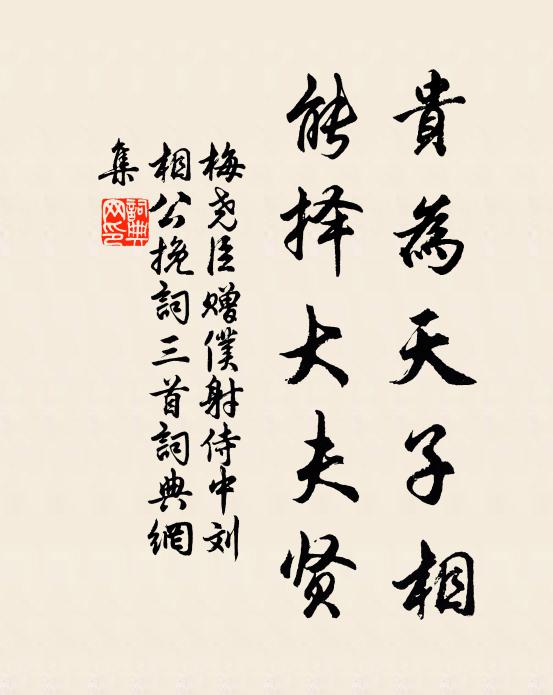 貴為天子相
能择大夫贤
梅尧臣赠僕射侍中刘
相公挽詞三首詞典網
集
詞典网印